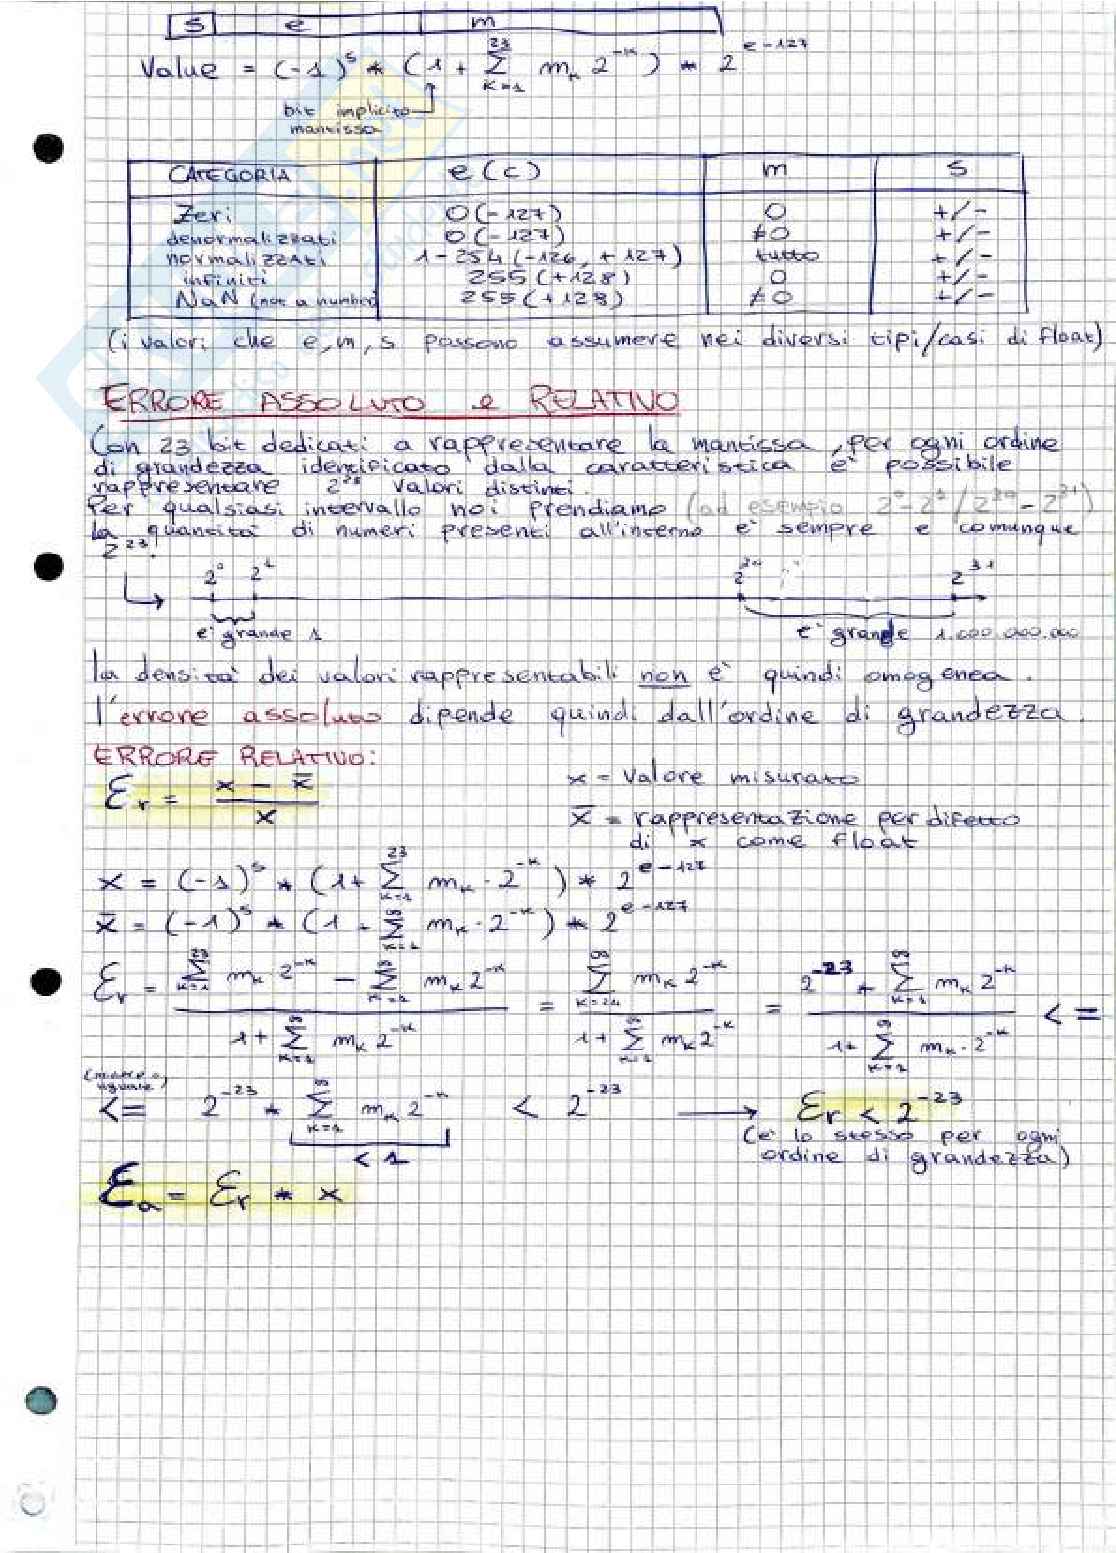 s e m
Value = (-1)^s * (1 + Σ_{k=1}^{23} m_k 2^{-k}) * 2^{e-127}
bit implicito
mantissa
CATEGORIA e (c) m s
Zeri 0 (-127) 0 +/-
denormalizzati 0 (-127) ≠0 +/-
normalizzati 1-254 (-126, +127) tutto +/-
infiniti 255 (+128) 0 +/-
NaN (not a number) 255 (+128) ≠0 +/-
(i valori che e, m, s possono assumere nei diversi tipi/casi di float)
ERRORE ASSOLUTO e RELATIVO
Con 23 bit dedicati a rappresentare la mantissa, per ogni ordine
di grandezza identificato dalla caratteristica è possibile
rappresentare 2^23 valori distinti.
Per qualsiasi intervallo noi prendiamo (ad esempio 2^0-2^1 / 2^30-2^31)
la quantità di numeri presenti all'interno è sempre e comunque
2^23.
2^0 2^1 2^30 2^31
è grande 1 è grande 1.000.000.000
la densità dei valori rappresentabili non è quindi omogenea.
l'errore assoluto dipende quindi dall'ordine di grandezza.
ERRORE RELATIVO:
Ɛ_r = (x - x̄) / x x = valore misurato
x̄ = rappresentazione per difetto
di x come float
x = (-1)^s * (1 + Σ_{k=1}^{23} m_k · 2^{-k}) * 2^{e-127}
x̄ = (-1)^s * (1 + Σ_{k=1}^{∞} m_k · 2^{-k}) * 2^{e-127}
Ɛ_r = (Σ_{k=1} m_k · 2^{-k} - Σ_{k=1}^{∞} m_k 2^{-k}) / (1 + Σ_{k=1}^{∞} m_k 2^{-k}) = (Σ_{k=24}^{∞} m_k 2^{-k}) / (1 + Σ_{k=1}^{∞} m_k 2^{-k}) = (2^{-23} * Σ_{k=1}^{∞} m_k 2^{-k}) / (1 + Σ_{k=1}^{∞} m_k · 2^{-k}) <=
(minore o
uguale)
<= 2^{-23} * Σ_{k=1}^{∞} m_k 2^{-k} < 2^{-23} → Ɛ_r < 2^{-23}
< 1
(è lo stesso per ogni
ordine di grandezza)
Ɛ_a = Ɛ_r * x